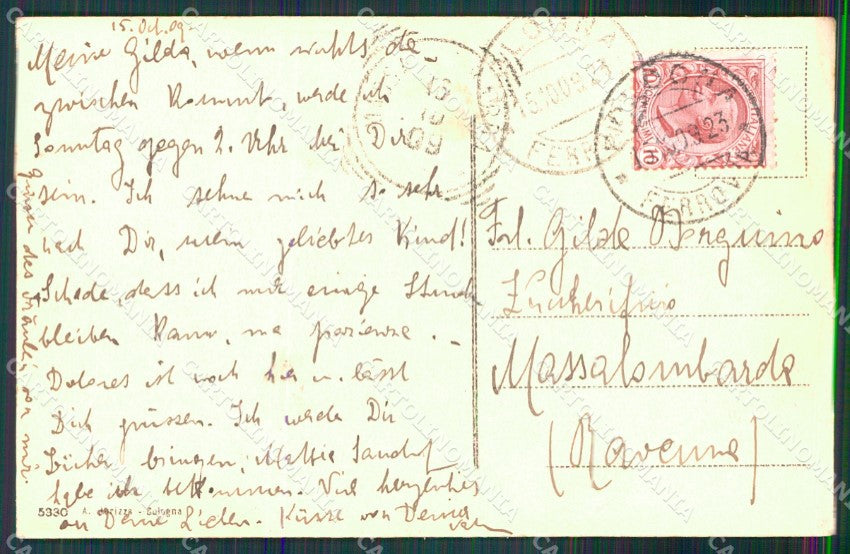 15. Oct. 09
Meine Gilda, wenn nichts da-
zwischen kommt, werde ich
Sonntag gegen 2. Uhr bei Dir
sein. Ich sehne mich so sehr
nach Dir, mein geliebtes Kind!
Schade, dass ich nur einige Stunden
bleiben kann, ma pazienza..
Dolores ist noch hier u. lässt
Dich grüssen. Ich werde Dir
Bücher bringen,
habe ich bekommen. Viel herzliches
an Deine Lieben. Küsse von Deiner
grüsse das Fräulein von mir.
5330 A. - Bologna
BOLOGNA
FERROVIA
Frl. Gilda
Zuccherificio
Massalombarda
(Ravenna)
CARTOLINOMANIA